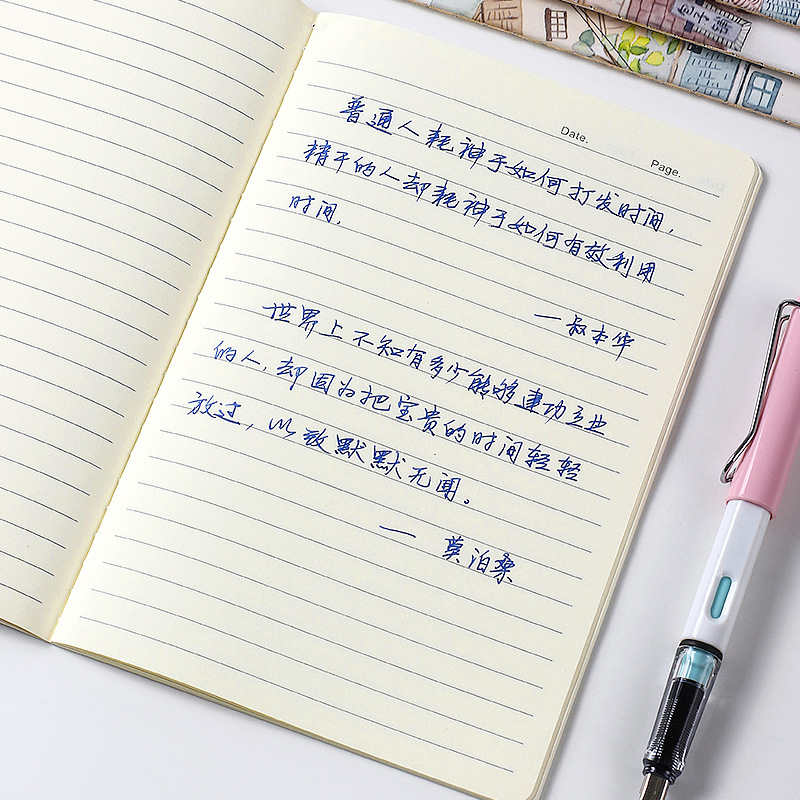 Date.
Page.
普通人耗神于如何打发时间，
精干的人却耗神于如何有效利用
时间，
—叔本华
世界上不知有多少能够建功立业
的人，却因为把宝贵的时间轻轻
放过，以致默默无闻。
— 莫泊桑